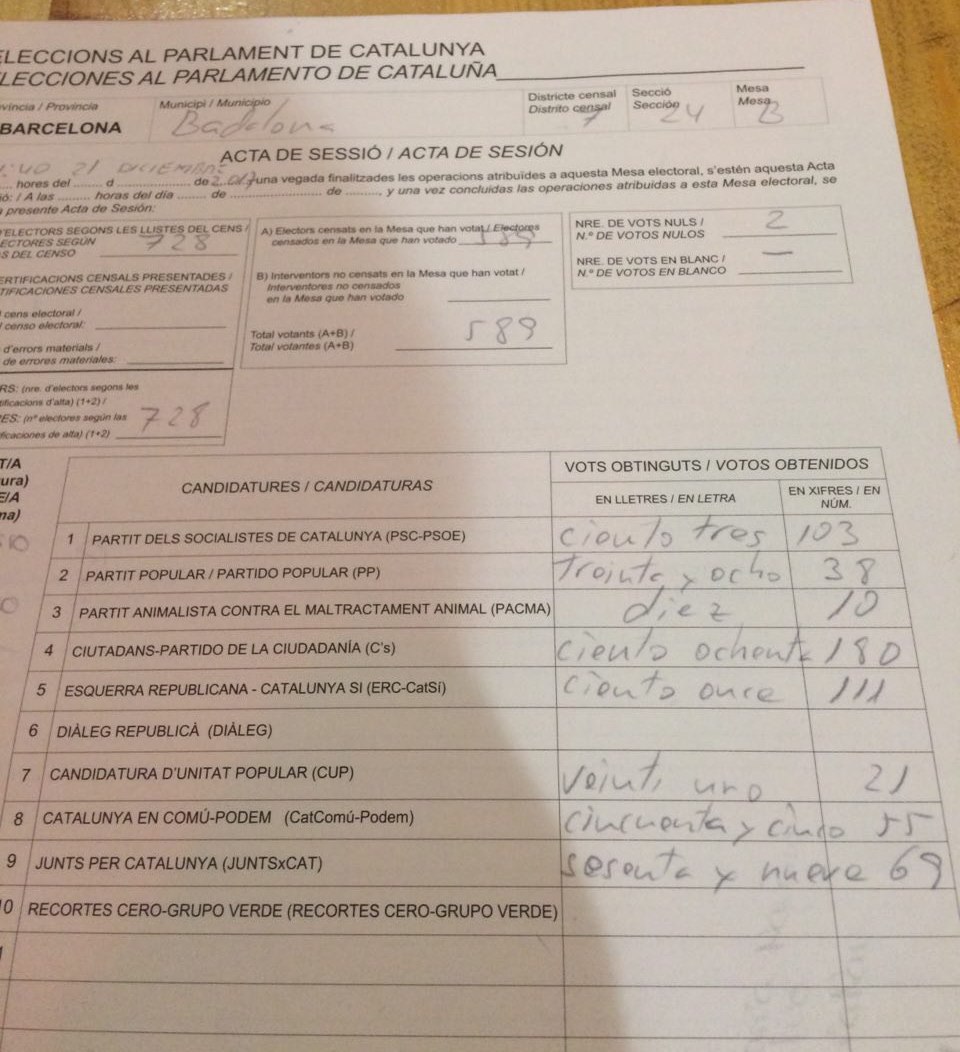 ELECCIONS AL PARLAMENT DE CATALUNYA
ELECCIONES AL PARLAMENTO DE CATALUÑA
víncia / Provincia
BARCELONA
Municipi / Municipio
Badalona
Districte censal
Distrito censal
7
Secció
Sección
24
Mesa
Mesa
B
ACTA DE SESSIÓ / ACTA DE SESIÓN
21 DICIEMBRE
hores del d de 2.017 una vegada finalitzades les operacions atribuïdes a aquesta Mesa electoral, s'estén aquesta Acta
ió: / A las horas del día de de , y una vez concluidas las operaciones atribuidas a esta Mesa electoral, se
presente Acta de Sesión:
'ELECTORS SEGONS LES LLISTES DEL CENS /
ECTORES SEGÚN
S DEL CENSO 728
ERTIFICACIONS CENSALS PRESENTADES /
TIFICACIONES CENSALES PRESENTADAS
cens electoral /
censo electoral:
d'errors materials /
de errores materiales:
RS: (nre. d'electors segons les
tificacions d'alta) (1+2) /
ES: (nº electores según las
ficaciones de alta) (1+2) 728
A) Electors censats en la Mesa que han votat / Electores
censados en la Mesa que han votado 589
B) Interventors no censats en la Mesa que han votat /
Interventores no censados
en la Mesa que han votado
Total votants (A+B) /
Total votantes (A+B) 589
NRE. DE VOTS NULS /
N.º DE VOTOS NULOS 2
NRE. DE VOTS EN BLANC /
N.º DE VOTOS EN BLANCO —
T/A
ura)
E/A
na)
CANDIDATURES / CANDIDATURAS
VOTS OBTINGUTS / VOTOS OBTENIDOS
EN LLETRES / EN LETRA
EN XIFRES / EN
NÚM.
1 PARTIT DELS SOCIALISTES DE CATALUNYA (PSC-PSOE) ciento tres 103
2 PARTIT POPULAR / PARTIDO POPULAR (PP) treinta y ocho 38
3 PARTIT ANIMALISTA CONTRA EL MALTRACTAMENT ANIMAL (PACMA) diez 10
4 CIUTADANS-PARTIDO DE LA CIUDADANÍA (C's) ciento ochenta 180
5 ESQUERRA REPUBLICANA - CATALUNYA SI (ERC-CatSí) ciento once 111
6 DIÀLEG REPUBLICÀ (DIÀLEG)
7 CANDIDATURA D'UNITAT POPULAR (CUP) veinti uno 21
8 CATALUNYA EN COMÚ-PODEM (CatComú-Podem) cincuenta y cinco 55
9 JUNTS PER CATALUNYA (JUNTSxCAT) sesenta y nueve 69
10 RECORTES CERO-GRUPO VERDE (RECORTES CERO-GRUPO VERDE)